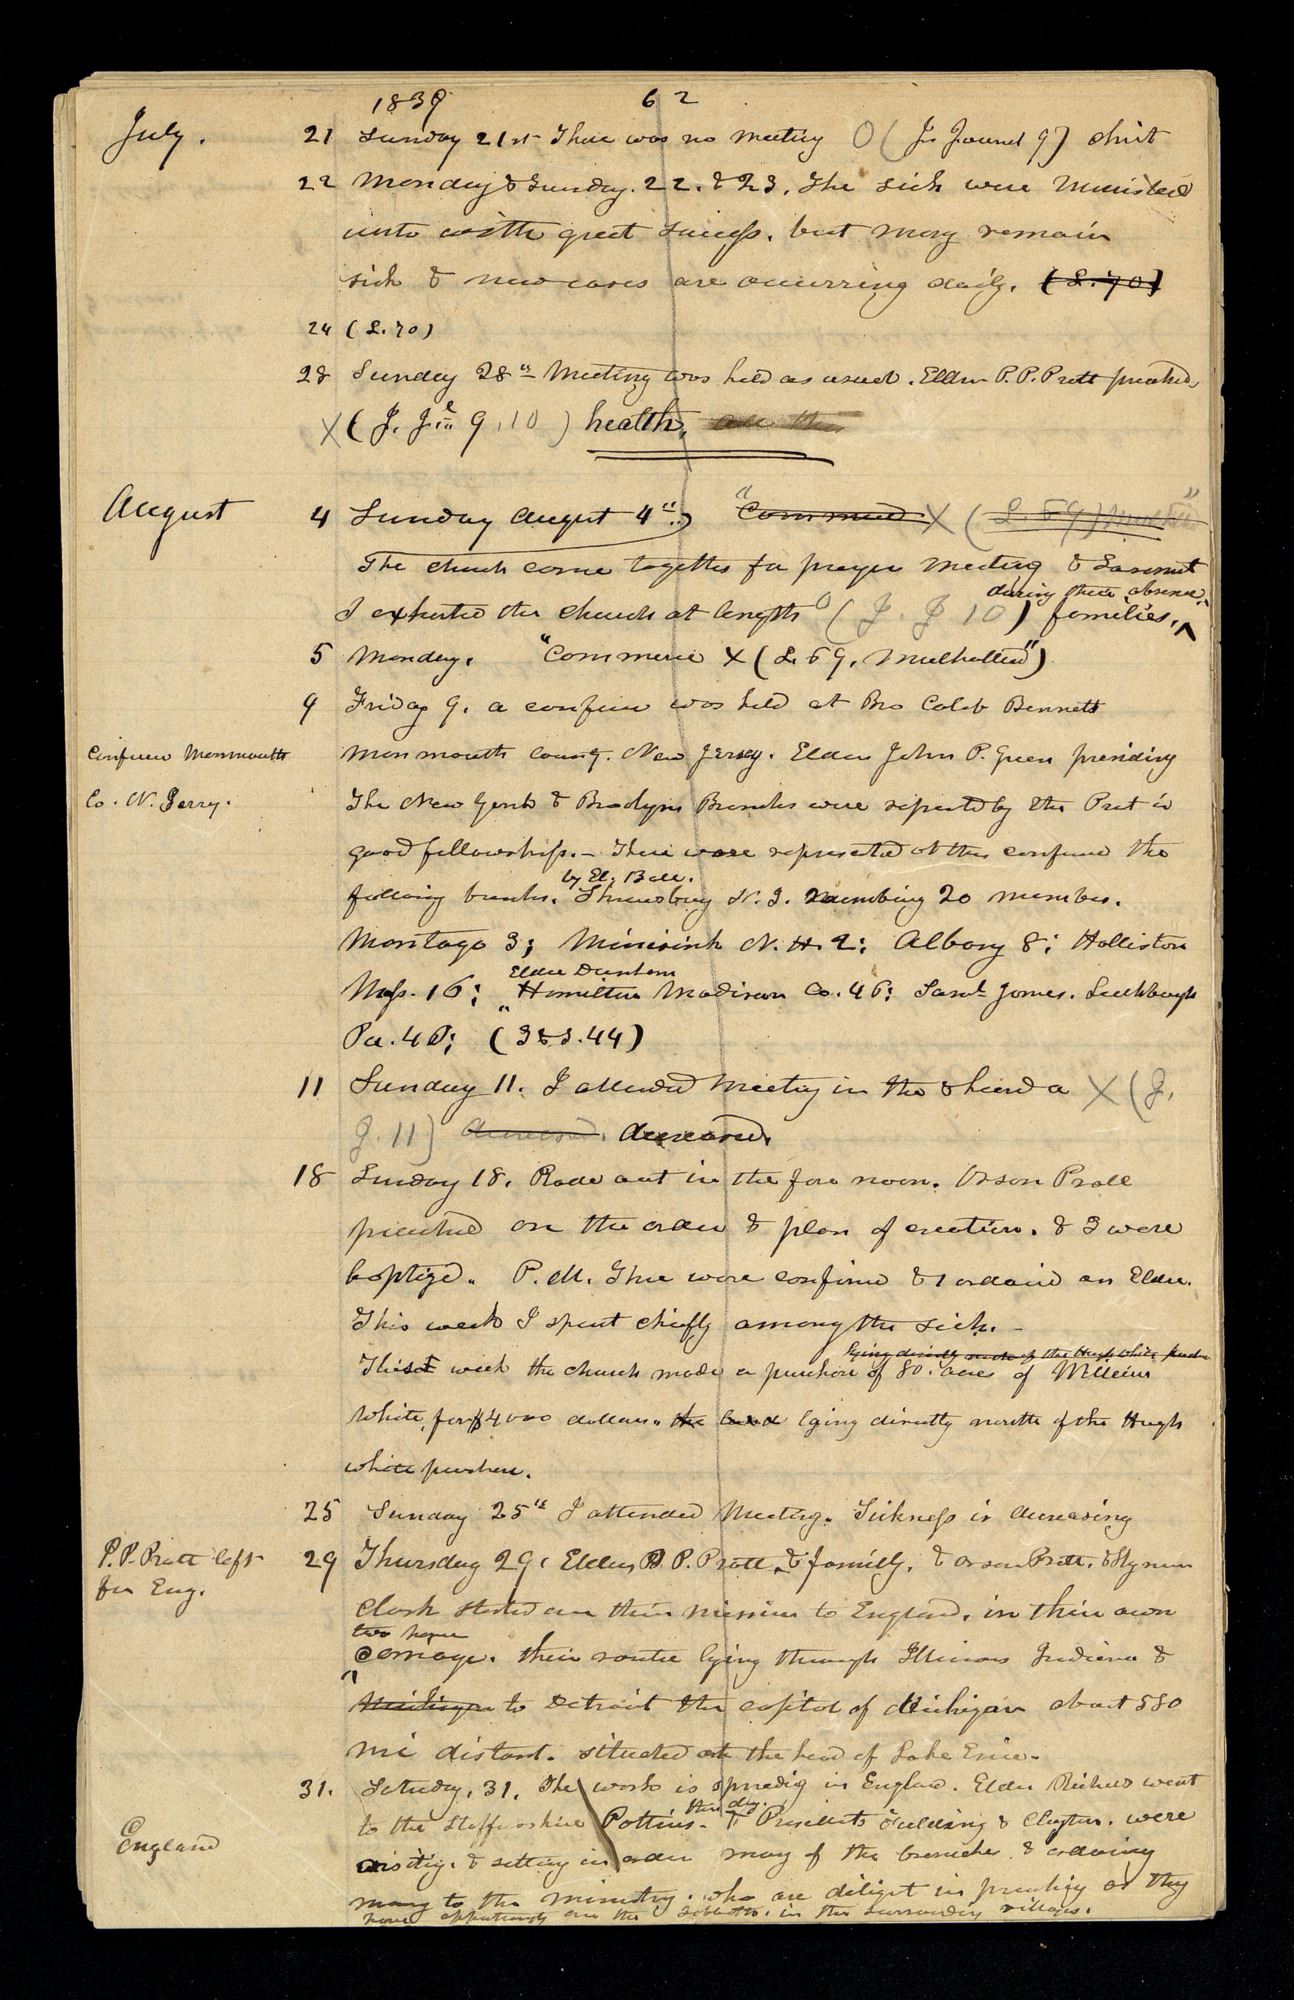 1839 62
July. 21 Sunday 21st There was no meeting O (Js Journal 9) christ
22 Monday & Sunday. 22. & 23. The sick were Ministed
unto with great success. but many remain
sick & new cases are occurring daily. (L. 70)
24 (L. 70)
28 Sunday 28th Meeting was held as usual. Elder P. P. Pratt preached
X (J. J. 9, 10) health. all the
August 4 Sunday August 4th. "Commerce X (L. 69) Mulholland"
The church come together for prayer meeting & Sacrament
during their absence
I exhorted the church at length O (J. J 10) families. ^
5 Monday. "Commerce X (L. 69, Mulholland")
9 Friday 9. a conference was held at Bro Caleb Bennetts
Conference Monmouth Monmouth County. New Jersey. Elder John P. Green presiding
Co. N. Jersey. The New York & Brooklyn Branches were represented by the Prest in
good fellowship. – There were represented at this conference the
by El. Ball.
following branches. Shrewsbury N. J. numbering 20 members.
Montage 3; Minisink N. H. 2; Albany 8; Holliston
Elder Dunham
Mass. 16; Hamilton Madison Co. 46; Saml James. Leechburgh
Pa. 40; (3 & 3. 44)
11 Sunday 11. I attended Meeting in the & heard a X (J.
J. 11) deceased. deceased.
18 Sunday 18. Rode out in the fore noon. Orson Pratt
preached on the order & plan of creation. & 3 were
baptized. P. M. Three were confirmed & 1 ordained an Elder.
This week I spent chiefly among the sick. –
lying directly north of the Hugh White purchase
This week the church made a purchase of 80. acres of William
White, for $4000 dollars. the land lying directly north of the Hugh
white purchase.
25 Sunday 25th I attended Meeting. Sickness is decreasing
P. P. Pratt left 29 Thursday 29. Elders P. P. Pratt, & family. & Orson Pratt. & Hyrum
for Eng. Clark started on their mission to England. in their own
two horse
carriage. their route lying through Illinois Indiana &
Michigan to Detroit the capitol of Michigan about 580
mi distant. situated at the head of Lake Erie. –
31. Saturday. 31. The work is spreading in England. Elder Richards went
this day.
to the Staffordshire Potteries. & Presidents Fielding & Clayton. were
England visiting. & setting in order many of the branches. & ordaining
many to the ministry. who are diligent in preaching as they
have opportunity on the Sabbath. in the surrounding villages.